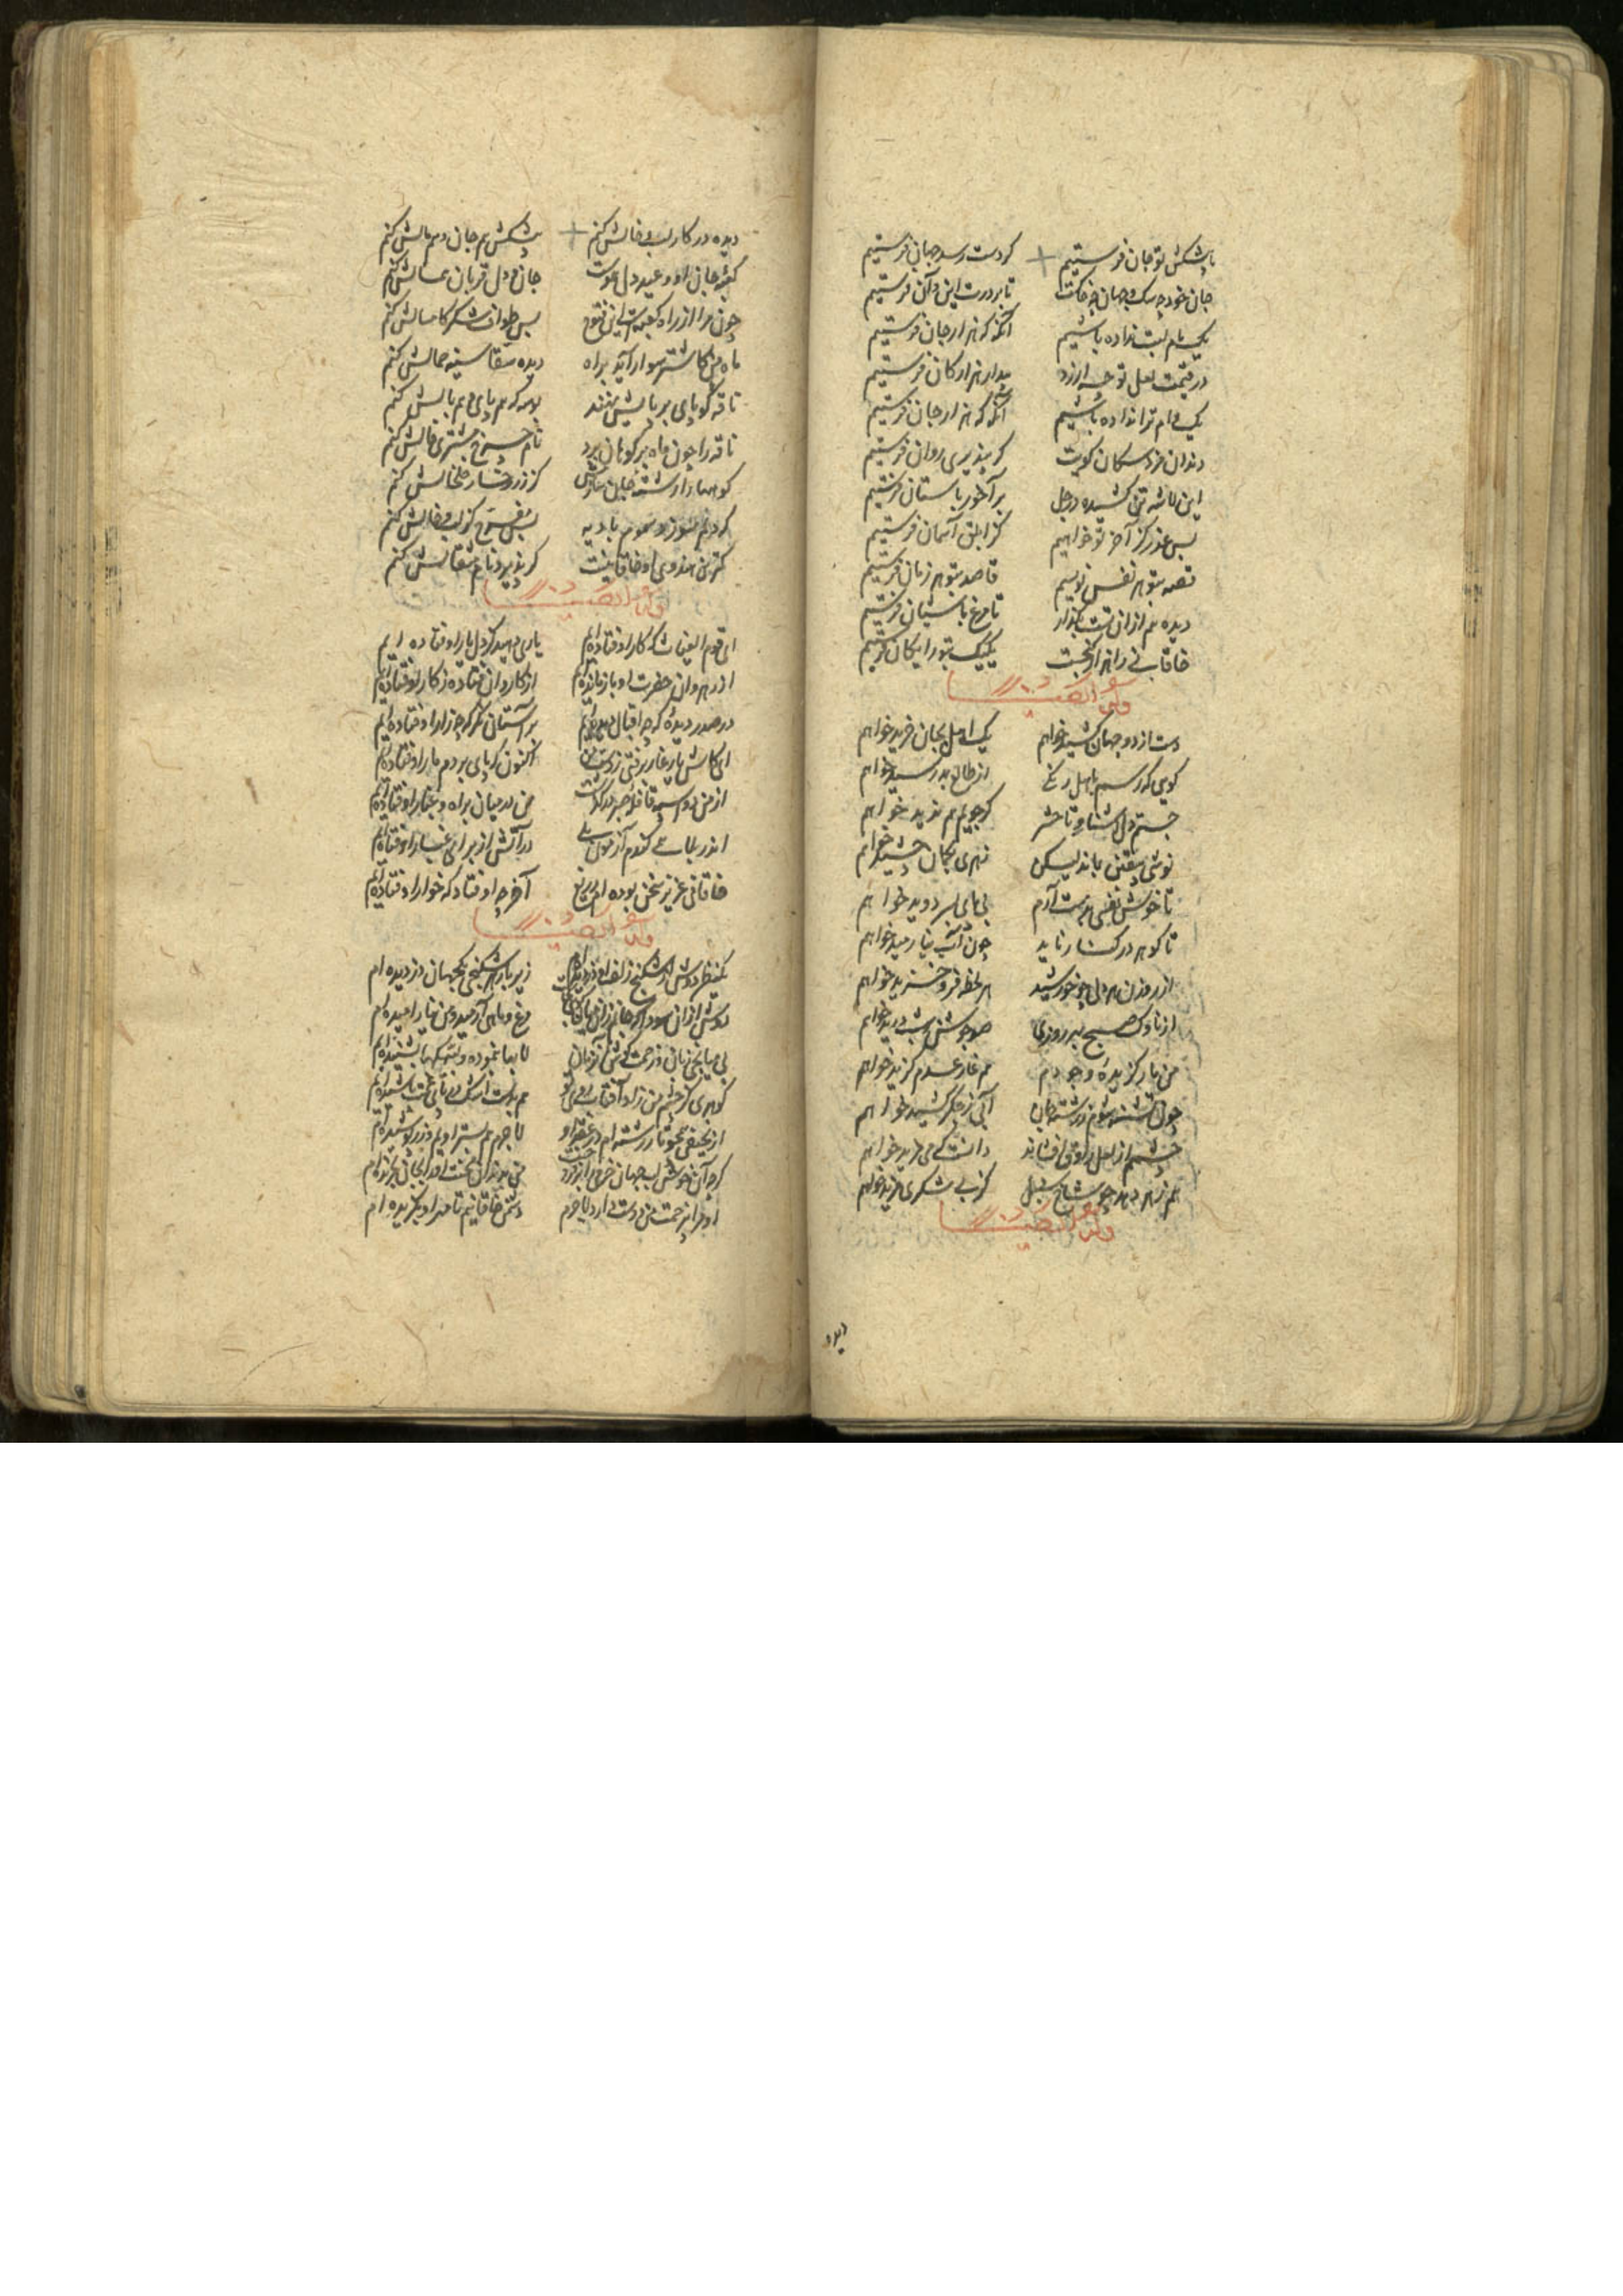 پیشکش تو جان فرستیم گر دست رسد جهان فرستیم
جان خود چه سگ و جهان چه خاکست تا بر درت این و آن فرستیم
یک نام لبت نداده باشیم آنگه که هزار جان فرستیم
در قیمت لعل تو چه ارزد هزار کان فرستیم
یک وام ترا نداده باشیم آنگه که هزار جان فرستیم
دندان مزد سگان کویت گر بپذیری روان فرستیم
این لاشه تن کشیده در جل بر آخور پاستان فرستیم
بس عذر کز آخر تو خواهیم کز ابلق آسمان فرستیم
قصه بتو هر نفس نویسیم قاصد بتو هر زمان فرستیم
دیده بم از ان تست بگذار تا مرغ باشیان فرستیم
خاقانی را هزار گنجست یک یک بتو رایگان فرستیم
وله ایضا
دست از دو جهان کشید خواهم یک اهل بجان خرید خواهم
کویی که رسم باهل رنگی از طالع بد رسید خواهم
جستم دل آشنا و تا حشر گر جویم هم ندید خواهم
نوشی بیقین نماند لیکن زهری بگمان چشید خواهم
تا خوش نفسی بدست آرم بی پای بسر دوید خواهم
تا گوهر در کنار ناید چون آب نیارمید خواهم
از روزن هر دلی چو خورشید هر لحظه فرو خزید خواهم
از ناوک صبح بهر روزی صد جوشن شب درید خواهم
من یار گزیده وجودم هم غار عدم گزید خواهم
چون تشنه شوم ز رشته جان آبی ز جگر کشید خواهم
چشم از لعل افشاند دانست که می مزید خواهم
هم زهر دهد چو شاخ سنبل گز بی شکری مزید خواهم
وله ایضا
دیده
دیده در کار لب و خالش کنم پیشکش هم جان و هم مالش کنم
کعبه جان او و عید دل هموست جان و دل قربان همسالش کنم
چون مرا از راه کعبه است این فتوح بس طواف شکر کاسالش کنم
ماه من کاشتر سوار آید براه دیده سقا سینه حمالش کنم
ناقه گو پای بر بالین نهند بوسه گه هم پای و هم بالش کنم
ناقه را چون ماه بر کوهان برد نام چرخ مشتری فالش کنم
کو مهار از رشته جان ساز کز زر رخسار خلخالش کنم
گر درم سوزد سموم بادیه بس مفرح کز لب و خالش کنم
کمترین هندوی او خاقانیست گر پذیرد نام مثقالش کنم
وله ایضا
ای قوم الغیاث که کار اوفتاده‌ایم یاری دهید کز دل یار اوفتاده‌ایم
از رهروان حضرت او بازمانده‌ایم از کاروان فتاده ز کار اوفتاده‌ایم
در صدر دیده که چه اقبال دیده‌ایم بر آستان نگر که چه زار اوفتاده‌ایم
ای کاش یار غار برفتی ز دست من اکنون که پای بر دم مار اوفتاده‌ایم
از من دو اسبه قافله صبر در گذشت من در میان راه و غبار اوفتاده‌ایم
اندر بلای کندم آزمون بلی در آتش از برای عیار اوفتاده‌ایم
خاقانی عزیز سخن بوده ام دریغ آخر چه اوفتاد که خوار اوفتاده‌ایم
وله ایضا
یکنظر دوش از شکنج زلف او دزدیده ام زیر هر شکنجی یکجهان دزدیده ام
دوش ازان سودا که جانم زان میان مرغ و ماهی آرمید و من نیارامیده ام
بی میانجی زبان و زحمت گوش آن زمان لابها بنموده و لبیکها بشنیده‌ام
گوهری کز چشم من زاد آفتاب روی تو هم بدست اشک در پای غمت پاشیده‌ام
از نحیفی همچو تار رشته ام در عقد او لاجرم هم بستر اویم و زر پوشیده‌ام
گر چه آن خوش لب جهان خرمی بر آورد من بدندان محنت او را بجان بگزیده ام
او مرا بزحمت من دوست دارد لاجرم دشمن خاقانیم تا مهر او بگزیده ام